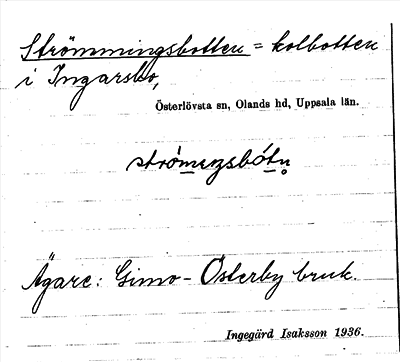 Strömmingsbotten = kolbotten
i Ingarsbo,
Österlövsta sn, Olands hd, Uppsala län.
strömiŋsbót̥n̥
Ägare: Gimo-Österby bruk.
Ingegärd Isaksson 1936.